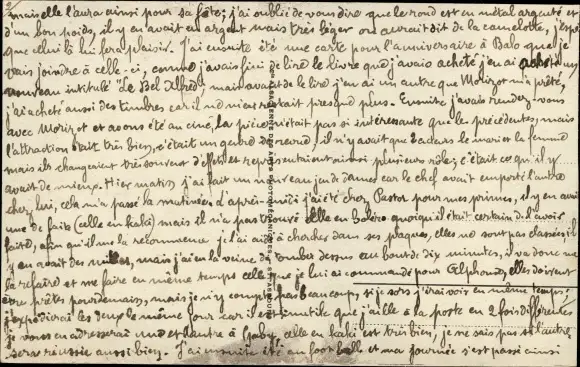 mais elle l'aura ainsi pour sa fête; j'ai oublié de vous dire que le rond est en métal argenté et
d'un bon poids, il y en avait en argent mais très léger on aurait dit de la camelotte, j'espère
que celui là lui fera plaisir. J'ai ensuite été une carte pour l'anniversaire à Balo que je
vais joindre à celle-ci, comme j'avais fini de lire le livre que j'avais acheté j'en ai acheté un
nouveau intitulé "Le Bel Alfred", mais avant de le lire j'en ai un autre que Morizot m'a prêté,
j'ai acheté aussi des timbres car il ne m'en restait presque plus. Ensuite j'avais rendez-vous
avec Morizot et avons été au ciné, la pièce n'était pas si intéressante que les précédentes, mais
l'attraction était très bien, c'était un genre de revue, il n'y avait que 2 acteurs le mari et la femme
mais ils changeaient très souvent d'effets et représentaient ainsi plusieurs rôles; c'était ce qu'il y
avait de mieux. Hier matin j'ai fait un nouveau jeu de dames car le chef avait emporté l'autre
chez lui, cela m'a passé la matinée d'après-midi j'ai été chez Pastor pour mes primes, il y en avait
une de faite (celle en kaki) mais il n'a pas trouvé celle en Boléro quoiqu'il était certain de l'avoir
faite, afin qu'il me la recommence je l'ai aidé à chercher dans ses plaques, elles ne sont pas classées il
y en avait des milles, mais j'ai eu la veine de tomber dessus au bout de dix minutes, il va donc me
la refaire et me faire en même temps celle que je lui ai commandé pour Alphonse, elles doivent
être prêtes pour demain, mais je n'y compte pas beaucoup, si je sors j'irai voir en même temps;
j'expédierai les deux le même jour car il est inutile que j'aille à la poste en 2 fois différentes
je vous en adresserai une et l'autre à Gaby, celle en kaki est très bien, je ne sais pas si l'autre
sera réussie aussi bien. J'ai ensuite été au foot balle et ma journée s'est passée ainsi